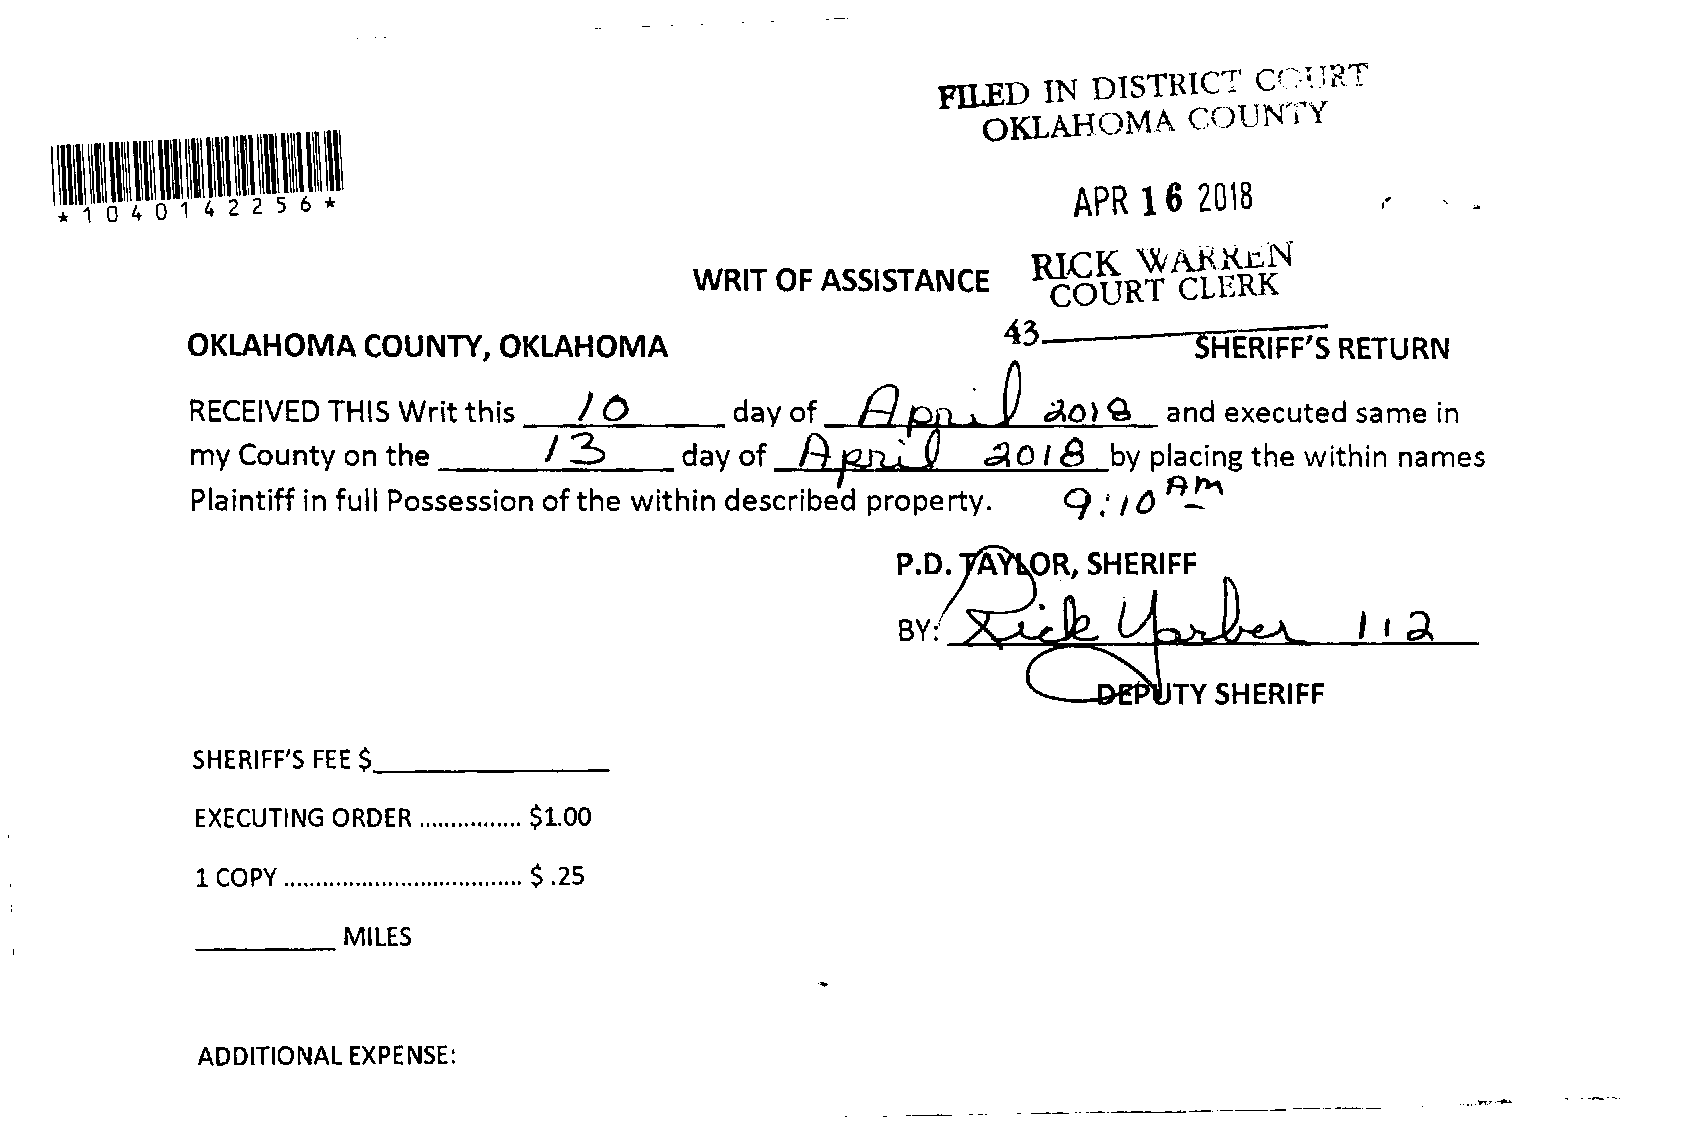 FILED IN DISTRICT COURT
OKLAHOMA COUNTY
*1040142256*
APR 16 2018
RICK WARREN
COURT CLERK
WRIT OF ASSISTANCE
43
OKLAHOMA COUNTY, OKLAHOMA SHERIFF'S RETURN
RECEIVED THIS Writ this 10 day of April 2018 and executed same in
my County on the 13 day of April 2018 by placing the within names
Plaintiff in full Possession of the within described property. 9:10 AM
P.D. TAYLOR, SHERIFF
BY: Rick Yarber 112
DEPUTY SHERIFF
SHERIFF'S FEE $
EXECUTING ORDER ................ $1.00
1 COPY ..................................... $ .25
MILES
ADDITIONAL EXPENSE: